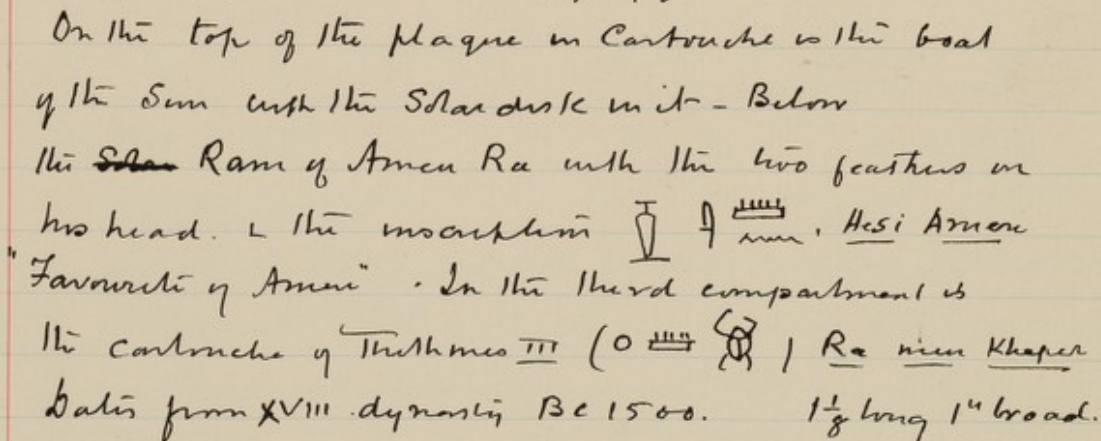 On the top of the plaque in Cartouche is the boat
of the Sun with the Solar disk in it - Below
the Solar Ram of Amen Ra with the two feathers on
his head. & the inscription 𓎿 𓇋 𓏠 𓈖 . Hesi Amen
"Favourite of Amen" . In the third compartment is
the cartouche of Thothmes III (𓇳 𓏠 𓆣 ) Ra men Khaper
Dates from XVIII dynasty BC 1500. 1 1/8 long 1" broad.